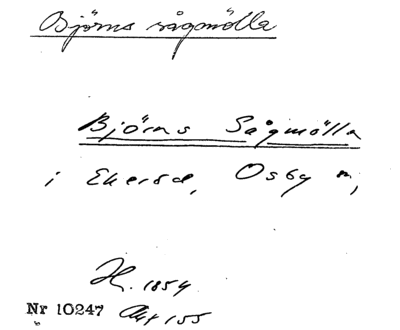 Björns sågmölla
Björns Sågmölla
i Ekeröd, Osby n,
H. 1854
Nr 10247 Akt 155